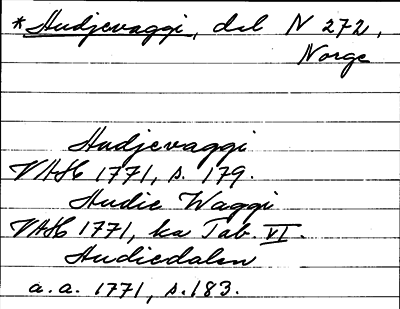 *Hudjevaggi, dal N 272,
Norge
Hudjevaggi
VAH 1771, s. 179.
Hudie Waggi
VAH 1771, ka Tab. VI.
Hudiedalen
a. a. 1771, s. 183.